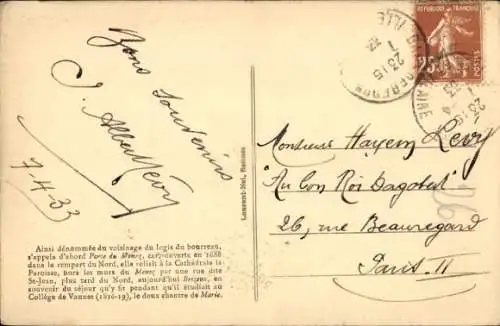 Bons Souvenirs
J. Albert Levy
7-4-33
Monsieur Hayem Levy
"Au Bon Roi Dagobert"
26, rue Beauregard
Paris II
26
REPUBLIQUE FRANÇAISE
POSTES
23 15
7
Ainsi dénommée du voisinage du logis du bourreau,
s'appela d'abord Porte du Moneq, car, ouverte en 1688
dans le rempart du Nord, elle reliait à la Cathédrale la
Paroisse, hors les murs du Moneq par une rue dite
St-Jean, plus tard du Nord, aujourd'hui Brizeux, en
souvenir du séjour qu'y fit pendant qu'il étudiait au
Collège de Vannes (1816-19), le doux chantre de Marie.